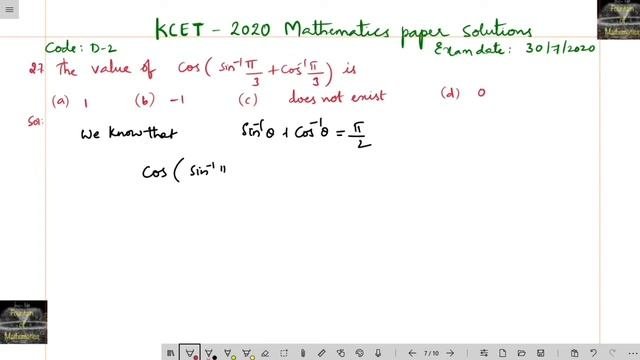 KCET - 2020 Mathematics paper solutions
Code: D-2
Exam date: 30/7/2020
27 The value of cos(sin⁻¹ π/3 + cos⁻¹ π/3) is
(a) 1 (b) -1 (c) does not exist (d) 0
Sol:
We know that sin⁻¹θ + cos⁻¹θ = π/2
cos( sin⁻¹ 11
Fountain
of
Mathematics
7 / 10